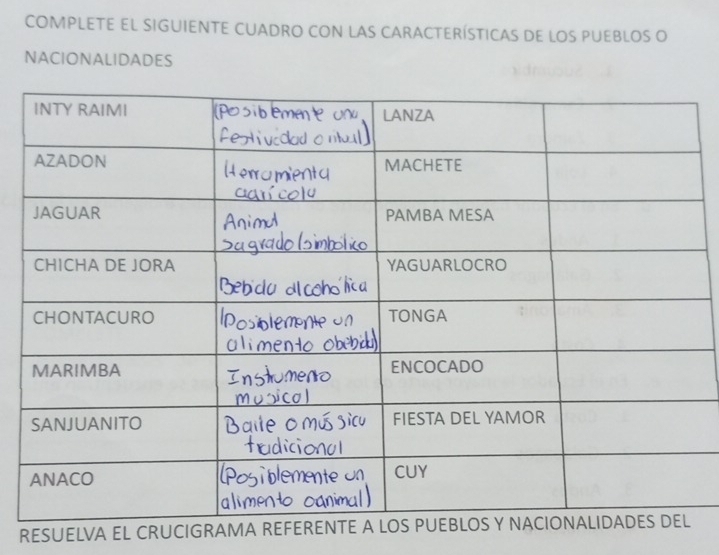 COMPLETE EL SIGUIENTE CUADRO CON LAS CARACTERÍSTICAS DE LOS PUEBLOS O
NACIONALIDADES
INTY RAIMI
(Posiblemente una
festividad o ritual)
LANZA
AZADON
Herramienta
agrícola
MACHETE
JAGUAR
Animal
sagrado/simbólico
PAMBA MESA
CHICHA DE JORA
Bebida alcohólica
YAGUARLOCRO
CHONTACURO
(Posiblemente un
alimento o bebida)
TONGA
MARIMBA
Instrumento
musical
ENCOCADO
SANJUANITO
Baile o mússica
tradicional
FIESTA DEL YAMOR
ANACO
(Posiblemente un
alimento o animal)
CUY
RESUELVA EL CRUCIGRAMA REFERENTE A LOS PUEBLOS Y NACIONALIDADES DEL